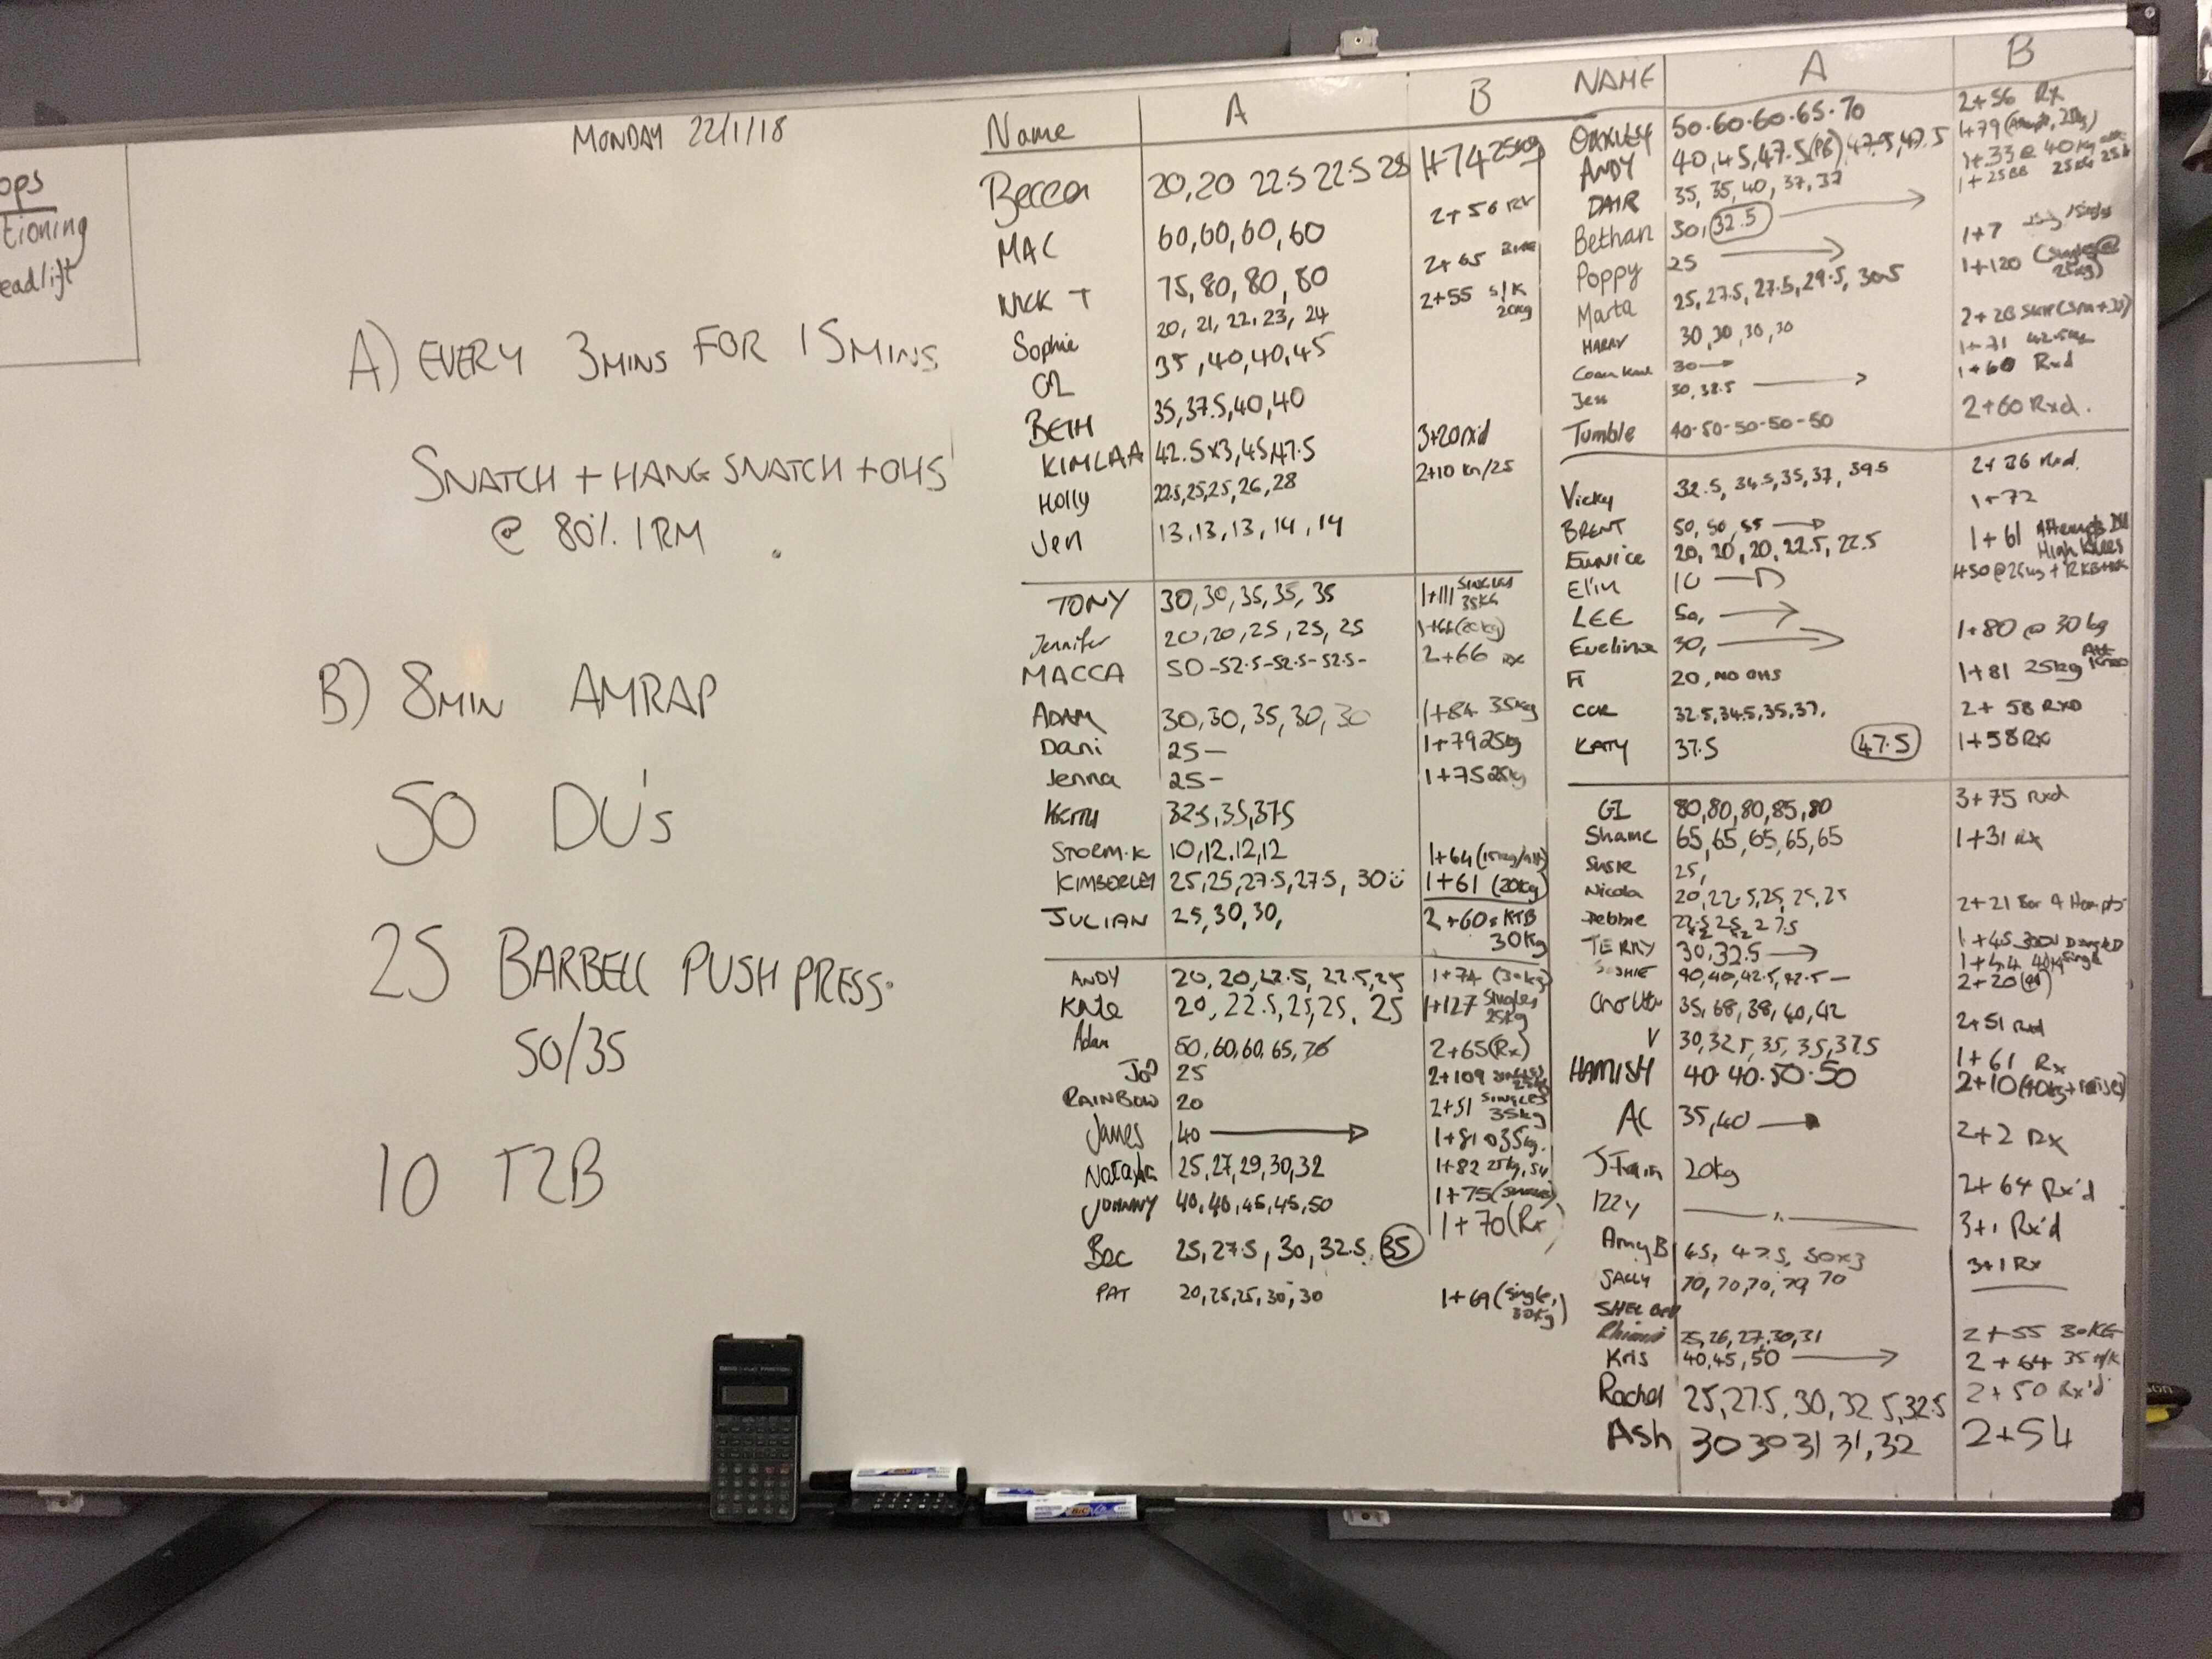 ops
tioning
eadlift
MONDAY 22/1/18
A) EVERY 3MINS FOR 15MINS
SNATCH + HANG SNATCH + OHS
@ 80% 1RM
B) 8MIN AMRAP
50 DU's
25 BARBELL PUSH PRESS
50/35
10 T2B
Name A B
Becca 20,20 22.5 22.5 28 1+74 25kg
MAC 60,60,60,60 2+56 RX
NICK T 75,80,80,80 2+65
Sophie 20, 21, 22, 23, 24 2+55 20kg
OZ 35,40,40,45
BETH 35,37.5,40,40
KIMLAA 42.5x3,45,47.5 3+20 rx'd
Holly 22.5,25,25,26,28 2+10 kn/25
Jen 13,13,13,14,14
TONY 30,30,35,35,35 1+111 SINGLES 35KG
Jennifer 20,20,25,25,25 (20kg)
MACCA 50-52.5-52.5-52.5- 2+66 RX
ADAM 30,30,35,30,30 1+84 35kg
Dani 25— 1+79 25kg
Jenna 25- 1+75 25kg
32.5,35,37.5
STORM.K 10,12,12,12 1+64
KIMBERLEY 25,25,27.5,27.5, 30 1+61 (20kg)
JULIAN 25,30,30, 2+60 KTB 30Kg
ANDY 20,20,22.5,22.5,25 1+74 (30kg)
Kate 20,22.5,25,25,25 1+127 Singles 25kg
Adam 60,60,65, 2+65(Rx)
JOD 25 2+109
RAINBOW 20 2+51 SINGLES 35kg
James 40 → 1+81 @35kg.
Natasha 25,27,29,30,32 1+82 25kg,
JOHNNY 40,40,45,45,50 1+75 (singles)
Bec 25,27.5,30,32.5,35 1+70 (Rx)
PAT 20,25,25,30,30 1+69 (single, 30kg)
NAME A B
OAKLEY 50.60.60.65.70 2+56 Rx
ANDY 40,45,47.5(PB),47.5,47.5 1+79
DAIR 35,35,40,37,37 1+33 @ 40kg
Bethan 30,32.5 → 1+25
Poppy 25 → 1+7
Marta 25,27.5,27.5,29.5,30.5 1+120 (singles @ 25kg)
HARRY 30,30,30,30
30 → 1+71 42.5kg
Jess 30,32.5 → 1+60 Rxd
Tumble 40-50-50-50-50 2+60 Rxd.
Vicky 32.5,34.5,35,37,39.5 2+36 Rxd.
BRENT 50,50,55 → 1+72
Eunice 20,20,20,22.5,22.5 1+61 Attempts DU High Knees
Elin 10 →
LEE 50, →
Evelina 30, → 1+80 @ 30kg
FI 20, NO OHS 1+81 25kg
COR 32.5,34.5,35,37, 2+58 RXD
KATY 37.5 47.5 1+58 Rx
GI 80,80,80,85,80 3+75 rxd
Shame 65,65,65,65,65 1+31 rx
SUSIE 25,
Nicola 20,22.5,25,25,25 2+21
Debbie 22.5 25 27.5
TERRY 30,32.5 → 1+45
40,40,42.5,42.5— 1+44 40kg single
35,68,38,40,42 2+20
V 30,32.5,35,35,37.5 2+51 rxd
HAMISH 40.40.50.50 1+61 Rx
AC 35,40 → 2+10 (40kg+raises)
JTrain 20kg 2+2 Rx
Izzy 2+64 Rx'd
Amy B 45, 47.5, 50x3 3+1 Rx'd
SALLY 70,70,70,70,70 3+1 Rx
25,26,27,30,31 2+55 30KG
Kris 40,45,50 → 2+64 35
Rachel 25,27.5,30,32.5,32.5 2+50 Rx'd
Ash 30 30 31 31,32 2+54
BIC